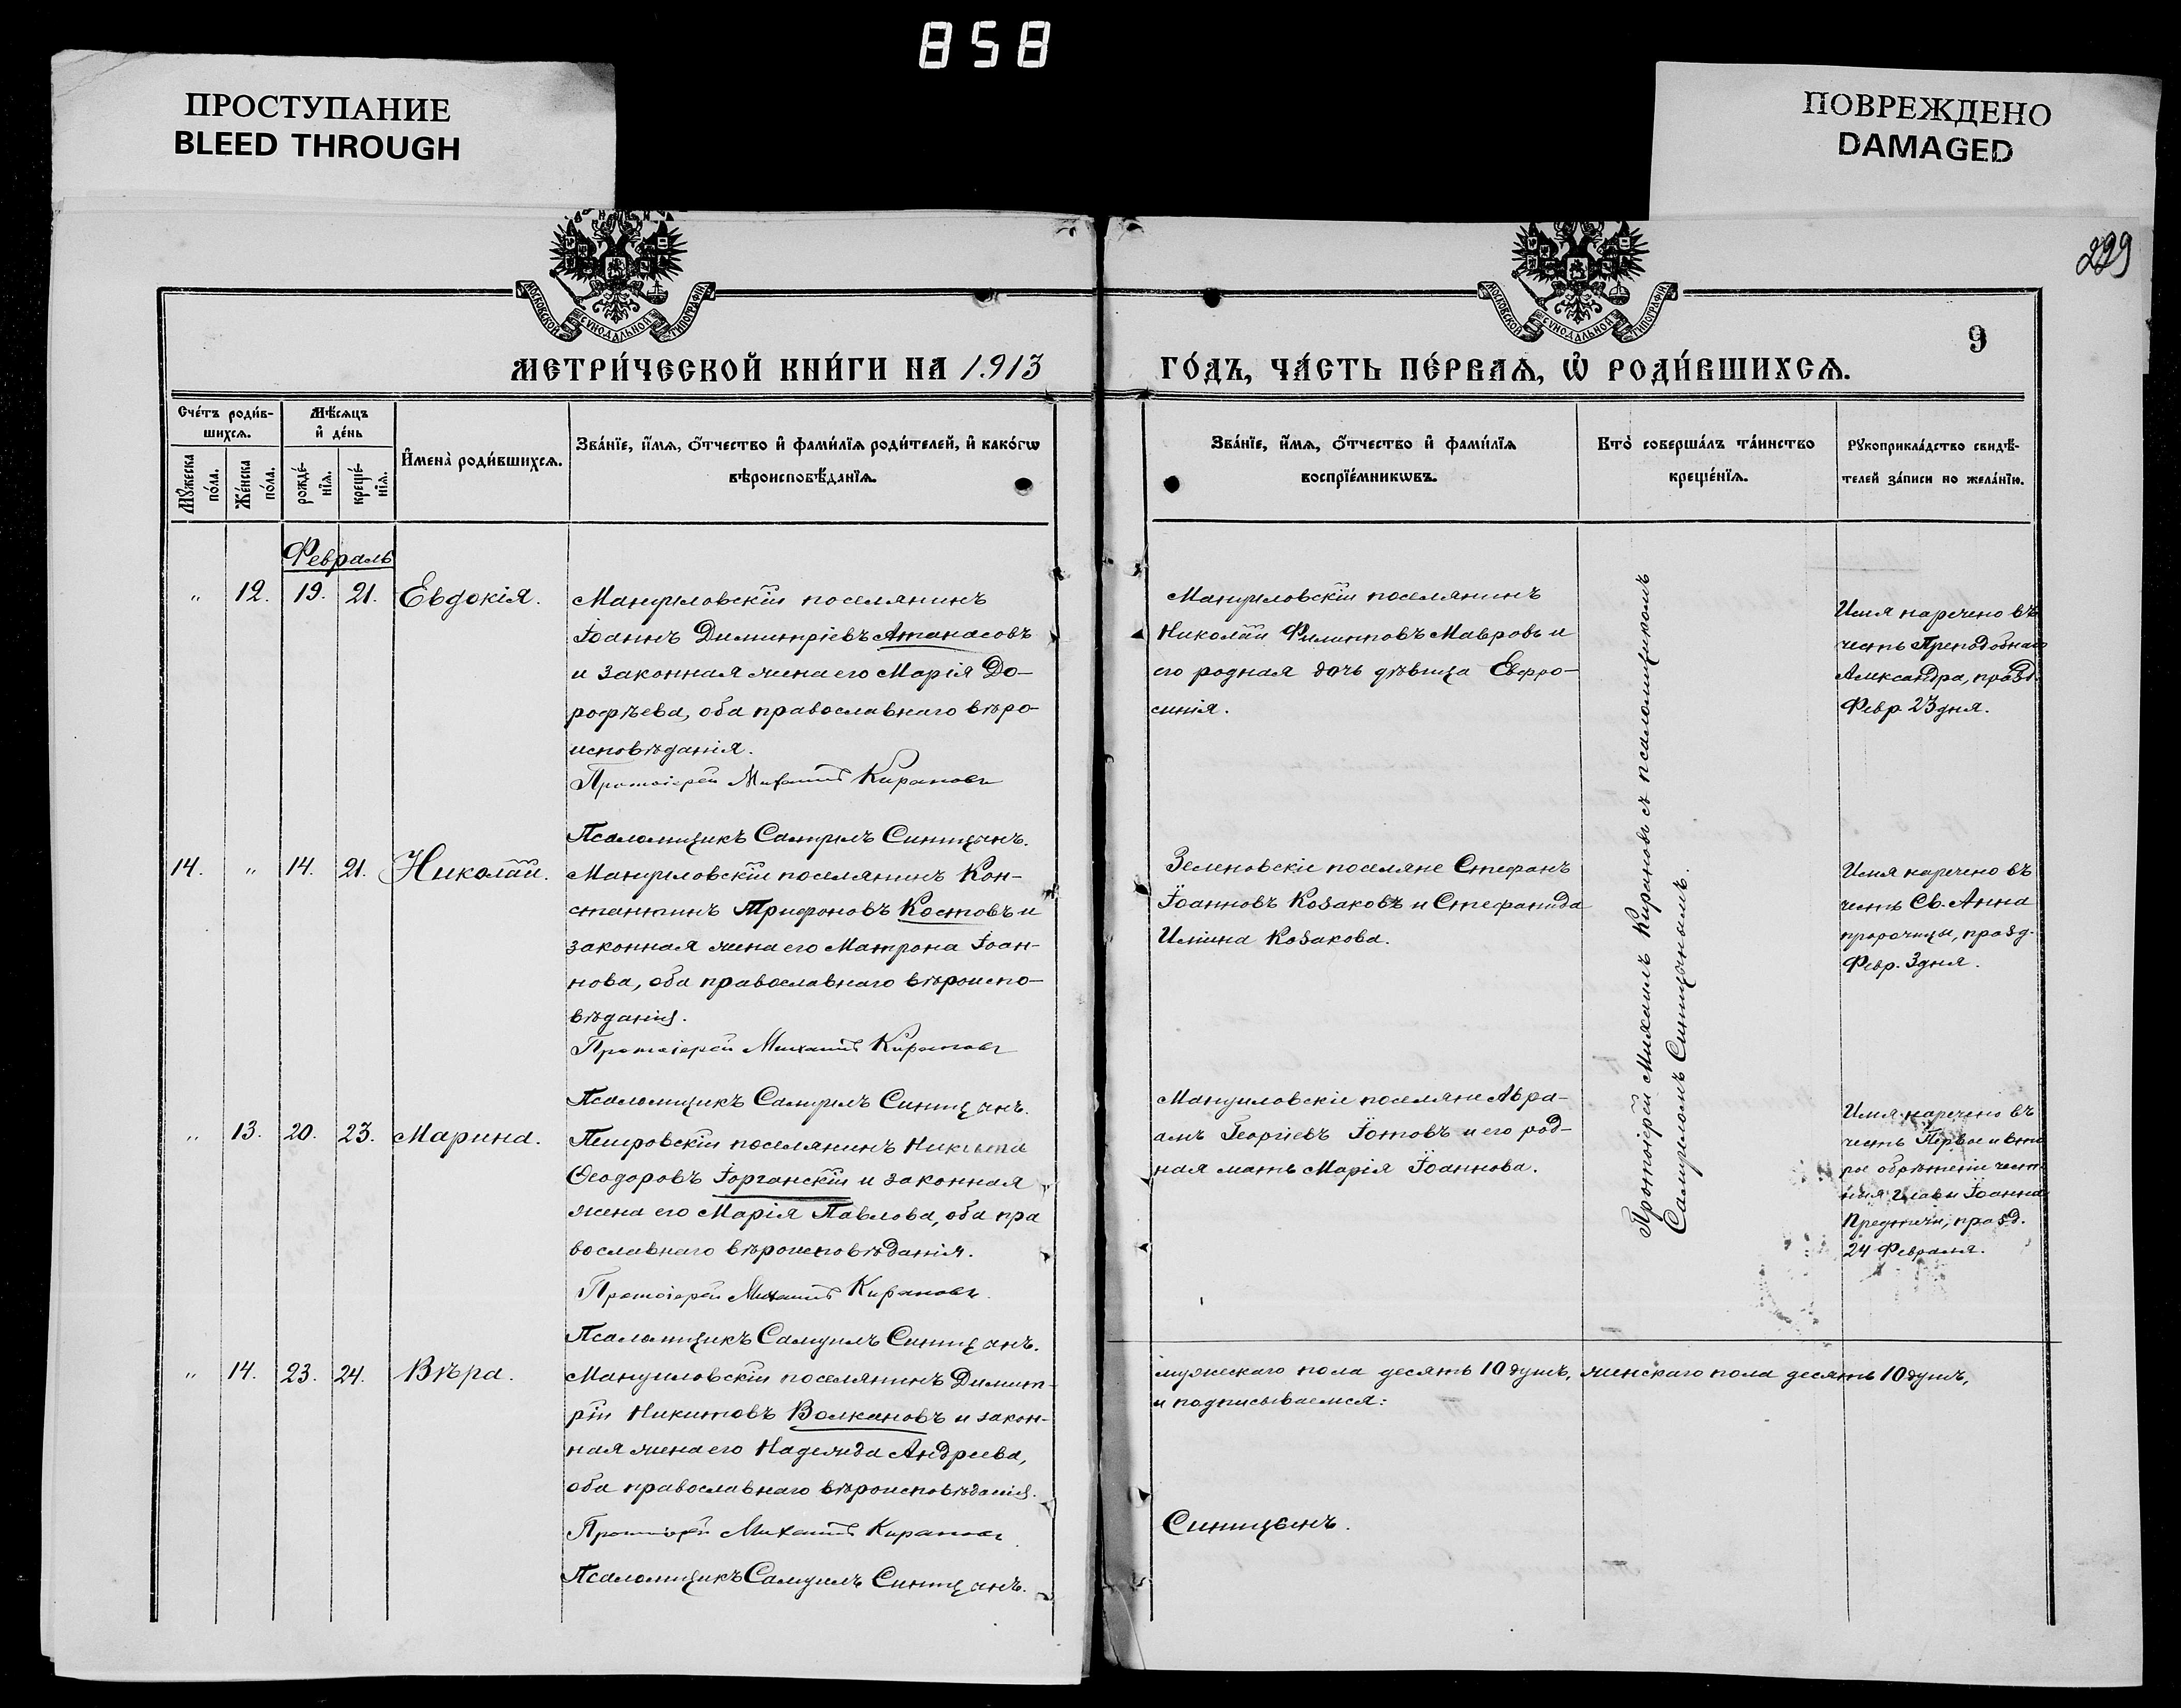 858
ПРОСТУПАНИЕ
BLEED THROUGH
ПОВРЕЖДЕНО
DAMAGED
229
9
МОСКОВСКОЙ СУНОДАЛЬНОЙ ТИПОГРАФІИ
МОСКОВСКОЙ СУНОДАЛЬНОЙ ТИПОГРАФІИ
МЕТРИ́ЧЕСКОЙ КНИ́ГИ НА 1913
ГО́ДЪ, ЧА́СТЬ ПЕ́РВАѦ, Ѡ҆ РОДИ́ВШИХСѦ.
Сче́тъ роди́в-
шихсѧ.
Мꙋ́жеска по́ла.
Же́нска по́ла.
Мѣ́сѧцъ
и҆ де́нь
рожде́-нїѧ.
креще́-нїѧ.
И҆мена̀ роди́вшихсѧ.
Зва́нїе, и҆́мѧ, ѻ҆́тчество и҆ фами́лїѧ роди́телей, и҆ како́гѡ
вѣроисповѣ́данїѧ.
Зва́нїе, и҆́мѧ, ѻ҆́тчество и҆ фами́лїѧ
воспрїе́мникѡвъ.
Кто̀ соверша́лъ та́инство
креще́нїѧ.
Рꙋкоприкла́дство свидѣ́-
телей за́писи по жела́нїю.
Февраль
" 12. 19. 21. Евдокія.
Мануиловскій поселянинъ
Іоаннъ Димитріевъ Атанасовъ
и законная жена его Марія До-
рофѣева, оба православнаго вѣро-
исповѣданія.
Протоіерей Михаилъ Кирановъ
Псаломщикъ Самуилъ Синицынъ.
Мануиловскій поселянинъ
Николай Филипповъ Мавровъ и
его родная дочь дѣвица Евфро-
синія.
Имя наречено въ
честь Преподобнаго
Александра, празд.
Февр. 23 дня.
14. " 14. 21. Николай.
Мануиловскій поселянинъ Кон-
стантинъ Трифоновъ Костовъ и
законная жена его Матрона Іоан-
нова, оба православнаго вѣроиспо-
вѣданія.
Протоіерей Михаилъ Кирановъ
Псаломщикъ Самуилъ Синицынъ.
Зеленовскіе поселяне Стефанъ
Іоанновъ Козаковъ и Стефанида
Ильина Козакова.
Имя наречено въ
честь Св. Анна
пророчицы, празд.
Февр. 3 дня.
" 13. 20. 23. Марина.
Петровскій поселянинъ Никита
Ѳеодоровъ Іорганскій и законная
жена его Марія Павлова, оба пра
вославнаго вѣроисповѣданія.
Протоіерей Михаилъ Кирановъ.
Псаломщикъ Самуилъ Синицынъ.
Мануиловскіе поселяне Авра-
амъ Георгіевъ Іотовъ и его род-
ная мать Марія Іоаннова.
Имя наречено въ
честь Первое и вто
рое обрѣтеніе чест
ныя главы Іоанна
Предтечи, празд.
24 Февраля.
Протоіерей Михаилъ Кирановъ съ псаломщикомъ
Самуиломъ Синицынымъ.
" 14. 23. 24. Вѣра.
Мануиловскій поселянинъ Димит-
рій Никитовъ Волкановъ и закон-
ная жена его Надежда Андреева,
оба православнаго вѣроисповѣданія.
Протоіерей Михаилъ Кирановъ
Псаломщикъ Самуилъ Синицынъ.
мужескаго пола десять 10 душъ, женскаго пола десять 10 душъ,
и подписываемся:
Синицынъ.